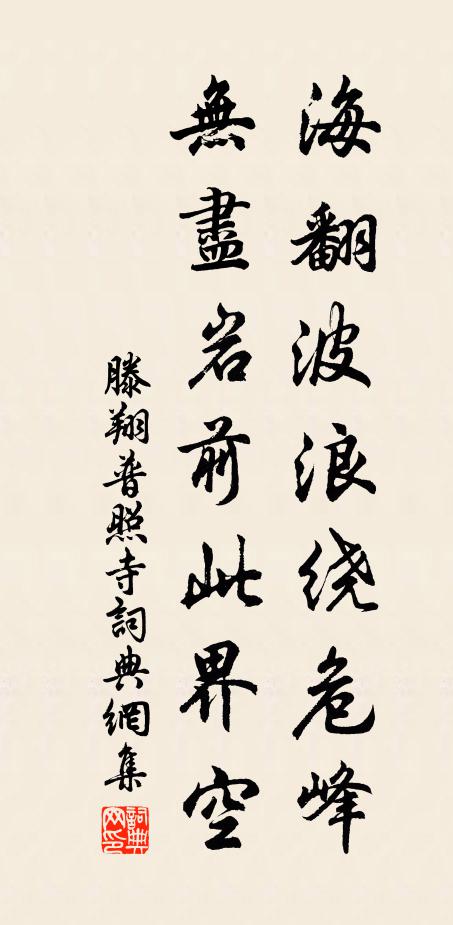 海翻波浪绕危峰
無盡岩前此界空
滕翔普照寺詞典網集
詞典網印